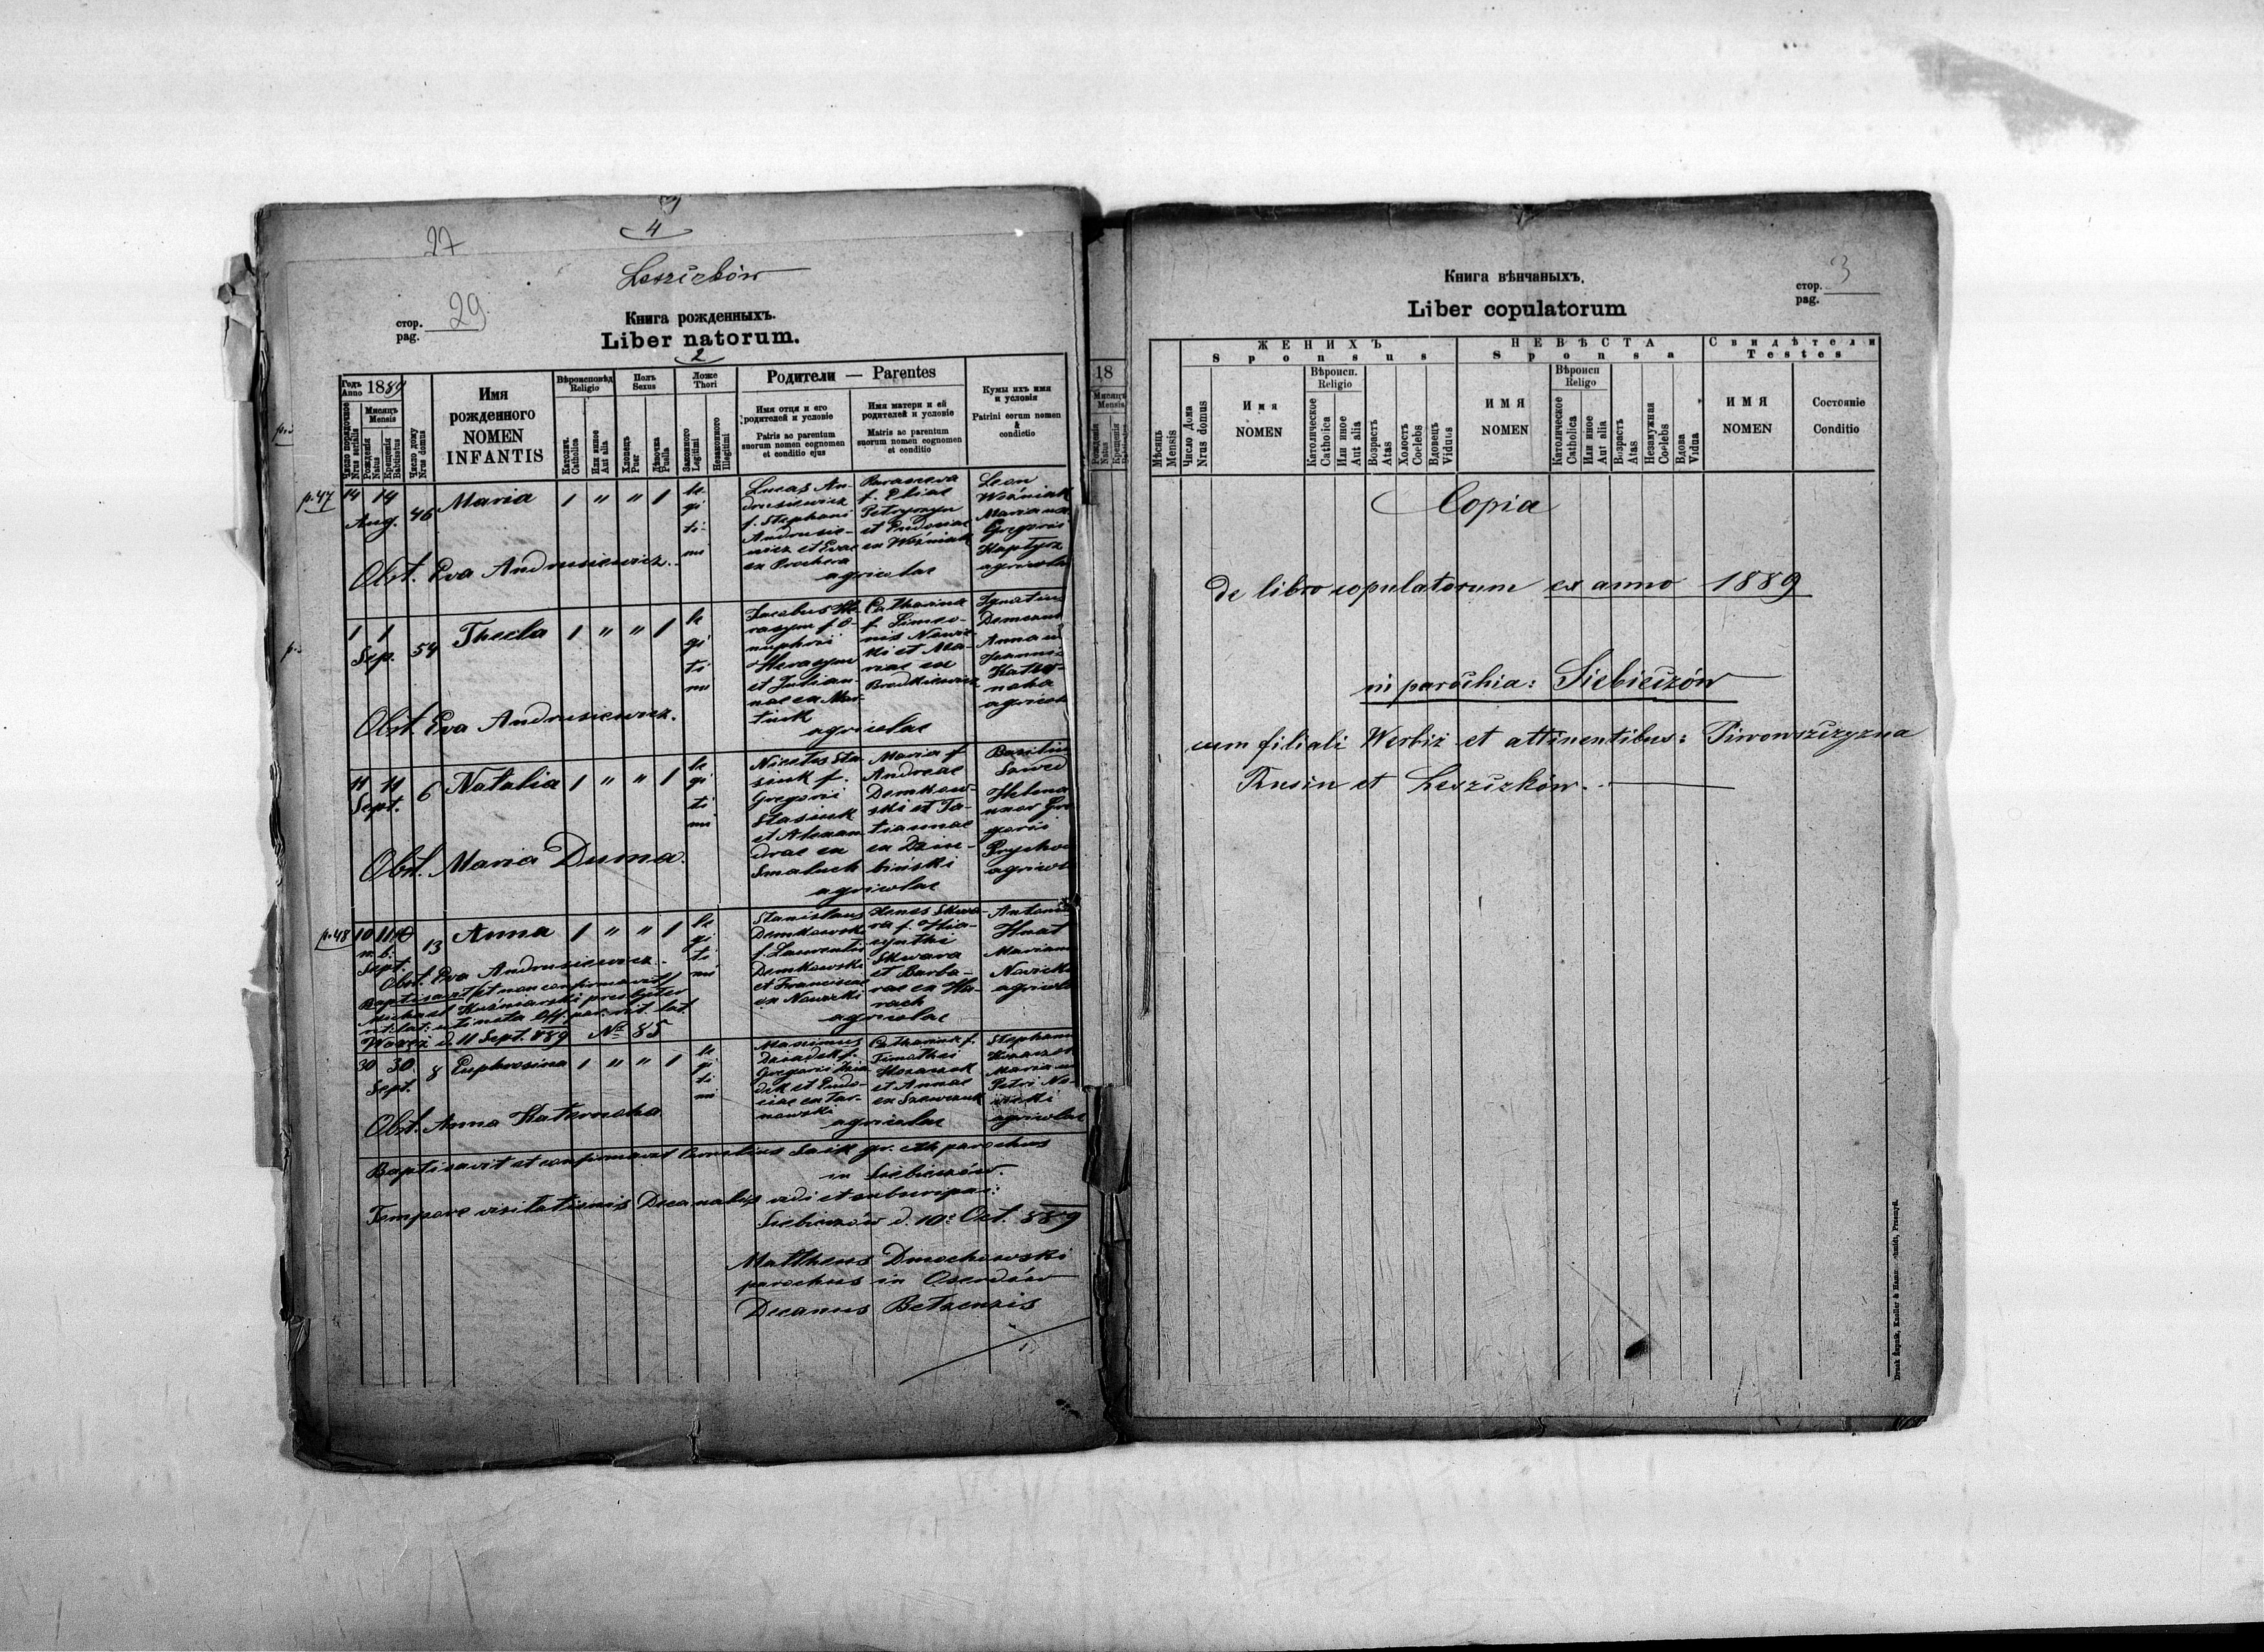 27
4
Leszczków
стор.
pag. 29
Книга рожденныхъ.
Liber natorum.
2
Годъ Anno 1889
Число порядковое
Nrus serialis
Мѣсяцъ
Mensis
Рожденія
Natus
Крещенія
Babtisatus
Число дому
Nrus domus
Имя
рожденного
NOMEN
INFANTIS
Вѣроисповѣд
Religio
Католич.
Catholica
Или иное
Aut alia
Полъ
Sexus
Хлопецъ
Puer
Дѣвочка
Puella
Ложе
Thori
Законного
Legitimi
Незаконного
Illegitimi
Родители — Parentes
Имя отца и его
родителей и условіе
Patris ac parentum
suorum nomen cognomen
et conditio ejus
Имя матери и ей
родителей и условіе
Matris ac parentum
suorum nomen cognomen
et conditio
Кумы ихъ имя
и условія
Patrini eorum nomen
&
condictio
p. 47
14 14
Aug.
46
Maria
1 " " 1
le-
gi
ti-
mi
Lucas An-
drusiewicz
f. Stephani
Andrusie-
wicz et Evae
ex Prochera
Parasceva
f. Eliae
et Eudociae
ex Woźniak
agricolae
Leon
Woźniak
Marianna
Gregorii
agricolae
Obst. Eva Andrusiewicz.
1 1
Sep.
54
Thecla
1 " " 1
le
gi
ti
mi
Jacobus He-
rasym f. O-
nuphrii
Herasym
et Julian-
nae ex Mar-
tiuk
Catharina
f. Simeo-
nis Nowic-
ki et Ma-
riae ex
agricolae
Ignatius
Anna
Obst. Eva Andrusiewicz.
11 11
Sept.
6
Natalia
1 " " 1
le
gi
ti
mi
Nicetas Sta-
siuk f.
Gregorii
Stasiuk
et Alexan-
drae ex
Smaluch
Maria f.
Andreae
Demkow-
ski et Ta-
tiannae
ex Dzie-
biński
agricolae
Basilius
Szwed
Helena
uxor Gre
gorii
Obst. Maria Duma.
p. 48
10 11
n. b.
Sept.
13
Anna
1 " " 1
le
gi
ti
mi
Stanislaus
Demkowski
f. Laurentii
Demkowski
et Franciscae
ex Nowicki
Agnes Skwa-
ra f. Hia-
cynthi
Skwara
et Barba-
rae ex Ha-
rach
agricolae
Antonius
Hnat
Marianna
Obst. Eva Andrusiewicz.
Baptisavit (et non confirmavit)
Michael Kuśniarski presbyter
rit: lat: uti nota Off. par. rit. lat.
Waręż d. 11 Sept. 889 Nr. 85
30 30
Sept.
8
Euphrosina
1 " " 1
le
gi
ti
mi
Maximus
Dziadyk f.
Gregorii Dzia
dyk et Eudo-
ciae ex Tar-
nawski
Catharina f.
Timothei
et Annae
ex Szewczuk
agricolae
Stephanus
Maria ux
Petri No-
wicki
agricolae
Obst. Anna Katernoha
Baptisavit et confirmavit Cornelius Saik gr. cth. parochus
in Siebieczów.
Tempore visitationis Decanalis vidi et subscripsi:
Siebieczów d. 10. Oct. 889
Mattheus Dmochowski
parochus in Oserdów
Decanus Belzensis
18
Мѣсяцъ
Mensis
Рожденія
Natus
Крещенія
Книга вѣнчаныхъ.
Liber copulatorum
стор.
pag. 3
Мѣсяць
Mensis
Число Дома
Nrus domus
ЖЕНИХЪ
Sponsus
Имя
NOMEN
Вѣроисп.
Religio
Католическое
Catholica
Или иное
Aut alia
Возрастъ
Atas
Холостъ
Coelebs
Вдовецъ
Viduus
НЕВѢСТА
Sponsa
ИМЯ
NOMEN
Вѣроисп
Religo
Католическое
Catholica
Или иное
Aut alia
Возрастъ
Atas
Незамужная
Coelebs
Вдова
Vidua
Свидѣтели
Testes
ИМЯ
NOMEN
Состояніе
Conditio
Copia
de libro copulatorum ex anno 1889
in parochia: Siebieczów
cum filiali Werbiż et attinentibus: Piwowszczyzna
Rusin et Leszczków.